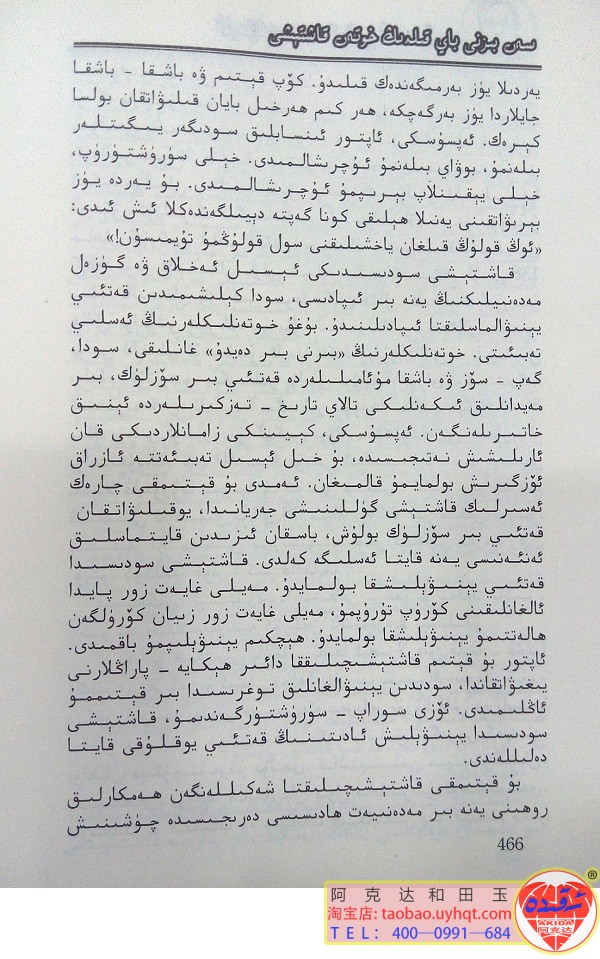 سەن بىزنى باي قىلدىڭ خوتەن قاشتېشى
يەردىلا يۈز بەرمىگەندەك قىلىدۇ. كۆپ قېتىم ۋە باشقا - باشقا
جايلاردا يۈز بەرگەچكە، ھەر كىم ھەرخىل بايان قىلىۋاتقان بولسا
كېرەك. ئەپسۇسكى، ئاپتور ئىنسابلىق سودىگەر يىگىتلەر
بىلەنمۇ، بوۋاي بىلەنمۇ ئۇچرىشالمىدى. خېلى سۈرۈشتۈرۈپ،
خېلى يېقىنلاپ بېرىپمۇ ئۇچرىشالمىدى. بۇ يەردە يۈز
بېرىۋاتقىنى يەنىلا ھېلىقى كونا گەپتە دېيىلگەندەكلا ئىش ئىدى:
«ئوڭ قولۇڭ قىلغان ياخشىلىقنى سول قولۇڭمۇ تۇيمىسۇن!»
قاشتېشى سودىسىدىكى ئېسىل ئەخلاق ۋە گۈزەل
مەدەنىيلىكنىڭ يەنە بىر ئىپادىسى، سودا كېلىشىمىدىن قەتئىي
يېنىۋالماسلىقتا ئىپادىلىنىدۇ. بۇغۇ خوتەنلىكلەرنىڭ ئەسلىي
تەبىئىتى. خوتەنلىكلەرنىڭ «بىرنى بىر دەيدۇ» غانلىقى، سودا،
گەپ - سۆز ۋە باشقا مۇئامىلىلەردە قەتئىي بىر سۆزلۈك، بىر
مەيدانلىق ئىكەنلىكى تالاي تارىخ - تەزكىرىلەردە ئېنىق
خاتىرىلەنگەن. ئەپسۇسكى، كېيىنكى زامانلاردىكى قان
ئارىلىشىش نەتىجىسىدە، بۇ خىل ئېسىل تەبىئەتتە ئازراق
ئۆزگىرىش بولمايمۇ قالمىغان. ئەمدى بۇ قېتىمقى چارەك
ئەسىرلىك قاشتېشى گۈللىنىشى جەريانىدا، يوقىلىۋاتقان
قەتئىي بىر سۆزلۈك بولۇش، باسقان ئىزىدىن قايتماسلىق
ئەنئەنىسى يەنە قايتا ئەسلىگە كەلدى. قاشتېشى سودىسىدا
قەتئىي يېنىۋېلىشقا بولمايدۇ. مەيلى غايەت زور پايدا
ئالغانلىقىنى كۆرۈپ تۇرۇپمۇ، مەيلى غايەت زور زىيان كۆرۈلگەن
ھالەتتىمۇ يېنىۋېلىشقا بولمايدۇ. ھېچكىم يېنىۋېلىپمۇ باقمىدى.
ئاپتور بۇ قېتىم قاشتېشىچىلىققا دائىر ھېكايە - پاراڭلارنى
يىغىۋاتقاندا، سودىدىن يېنىۋالغانلىق توغرىسىدا بىر قېتىممۇ
ئاڭلىمىدى. ئۆزى سوراپ - سۈرۈشتۈرگەندىمۇ، قاشتېشى
سودىسىدا يېنىۋېلىش ئادىتىنىڭ قەتئىي يوقلۇقى قايتا
دەلىللەندى.
بۇ قېتىمقى قاشتېشىچىلىقتا شەكىللەنگەن ھەمكارلىق
روھىنى يەنە بىر مەدەنىيەت ھادىسىسى دەرىجىسىدە چۈشىنىش
466
阿克达和田玉
淘宝店: taobao.uyhqt.com
TEL: 400—0991—684
®
AKIDA
阿克达